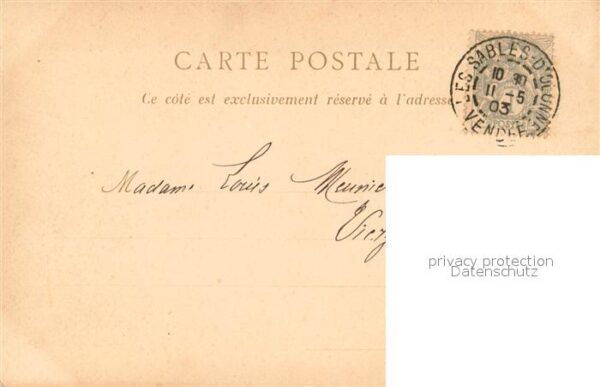 CARTE POSTALE
Ce côté est exclusivement réservé à l'adresse
LES SABLES-D'OLONNE
10 30
11 -5
03
VENDEE
Madame Louis Meunie
Vierz
privacy protection
Datenschutz